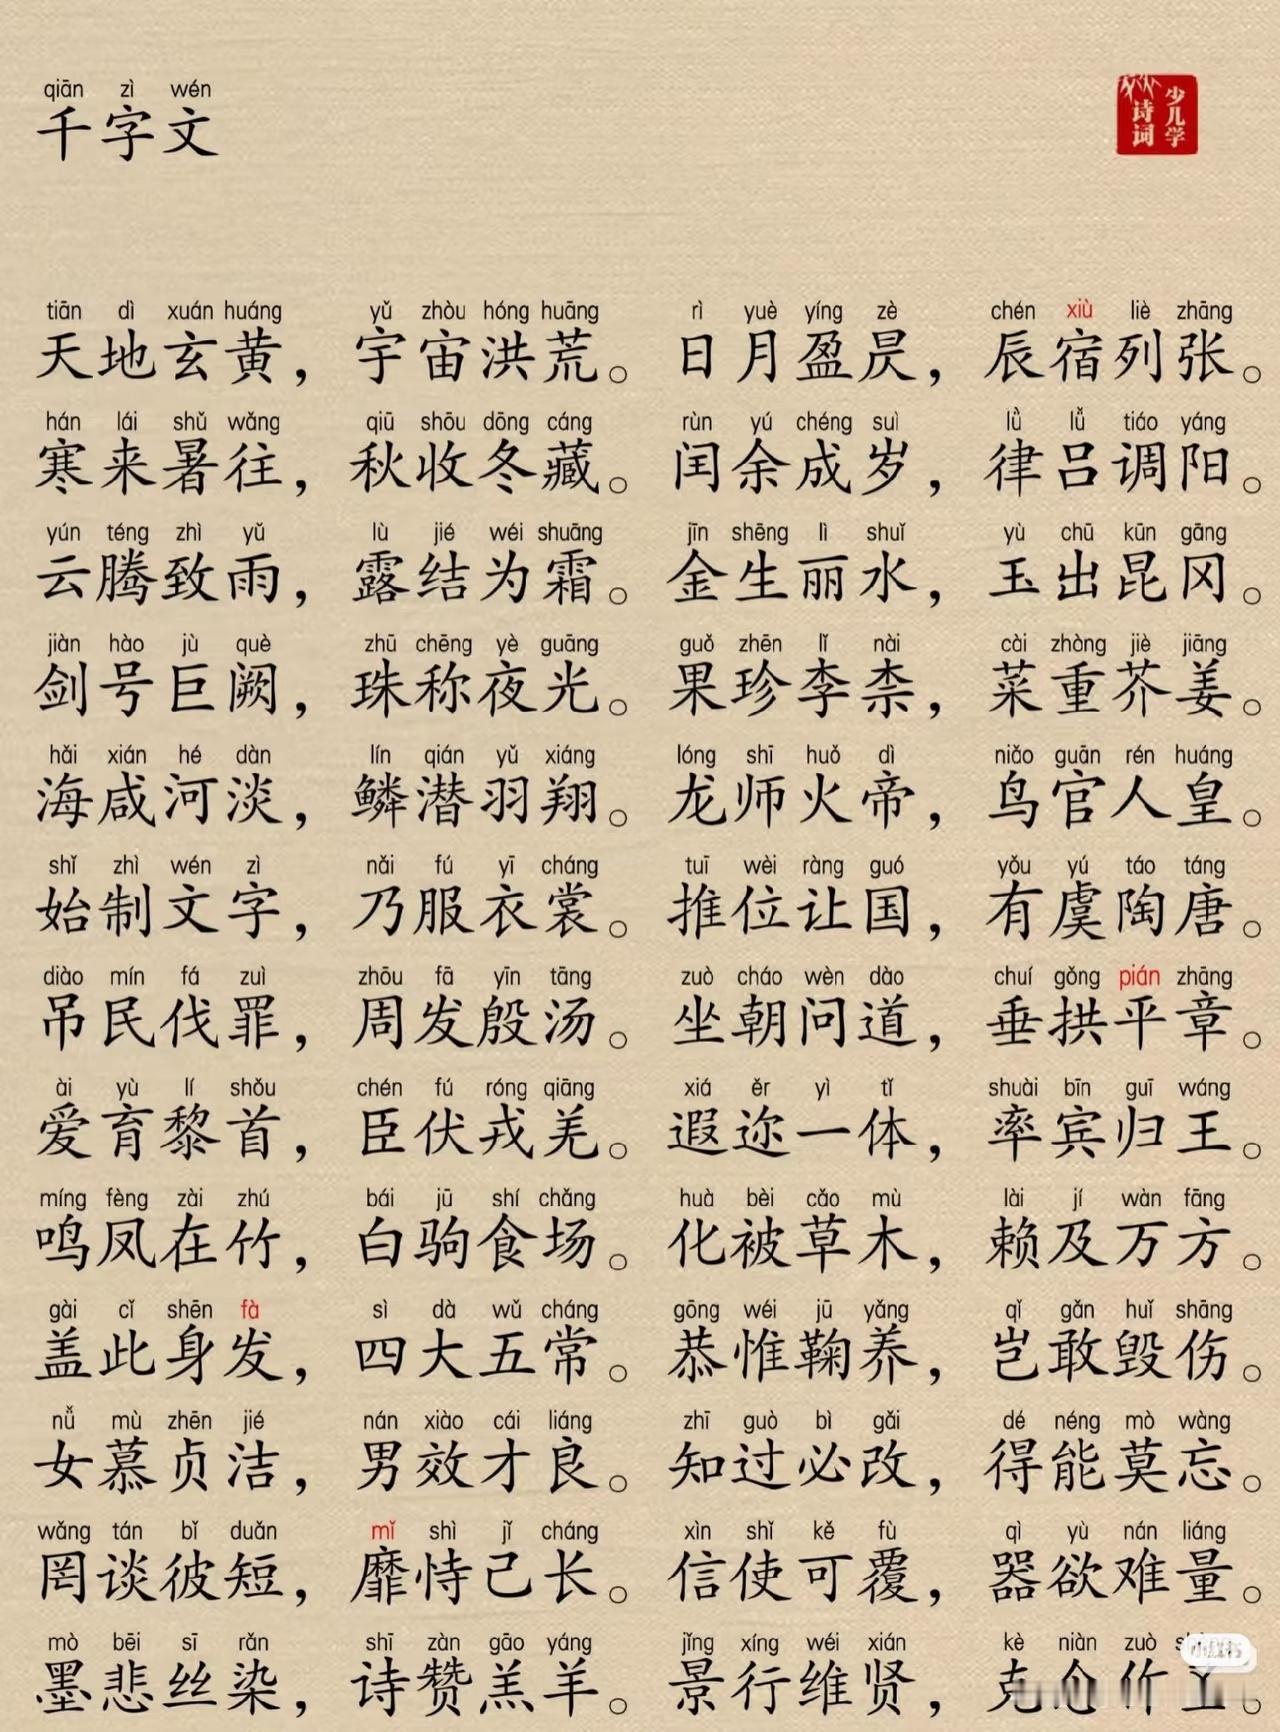 qiān zì wén
千字文
少儿学
诗词
tiān dì xuán huáng yǔ zhòu hóng huāng rì yuè yíng zè chén xiù liè zhāng
天地玄黄，宇宙洪荒。日月盈昃，辰宿列张。
hán lái shǔ wǎng qiū shōu dōng cáng rùn yú chéng suì lǜ lǚ tiáo yáng
寒来暑往，秋收冬藏。闰余成岁，律吕调阳。
yún téng zhì yǔ lù jié wéi shuāng jīn shēng lì shuǐ yù chū kūn gāng
云腾致雨，露结为霜。金生丽水，玉出昆冈。
jiàn hào jù què zhū chēng yè guāng guǒ zhēn lǐ nài cài zhòng jiè jiāng
剑号巨阙，珠称夜光。果珍李柰，菜重芥姜。
hǎi xián hé dàn lín qián yǔ xiáng lóng shī huǒ dì niǎo guān rén huáng
海咸河淡，鳞潜羽翔。龙师火帝，鸟官人皇。
shǐ zhì wén zì nǎi fú yī cháng tuī wèi ràng guó yǒu yú táo táng
始制文字，乃服衣裳。推位让国，有虞陶唐。
diào mín fá zuì zhōu fā yīn tāng zuò cháo wèn dào chuí gǒng pián zhāng
吊民伐罪，周发殷汤。坐朝问道，垂拱平章。
ài yù lí shǒu chén fú róng qiāng xiá ěr yì tǐ shuài bīn guī wáng
爱育黎首，臣伏戎羌。遐迩一体，率宾归王。
míng fèng zài zhú bái jū shí chǎng huà bèi cǎo mù lài jí wàn fāng
鸣凤在竹，白驹食场。化被草木，赖及万方。
gài cǐ shēn fà sì dà wǔ cháng gōng wéi jū yǎng qǐ gǎn huǐ shāng
盖此身发，四大五常。恭惟鞠养，岂敢毁伤。
nǚ mù zhēn jié nán xiào cái liáng zhī guò bì gǎi dé néng mò wàng
女慕贞洁，男效才良。知过必改，得能莫忘。
wǎng tán bǐ duǎn mǐ shì jǐ cháng xìn shǐ kě fù qì yù nán liáng
罔谈彼短，靡恃己长。信使可覆，器欲难量。
mò bēi sī rǎn shī zàn gāo yáng jǐng xíng wéi xián kè niàn zuò
墨悲丝染，诗赞羔羊。景行维贤，克念作。
小红书